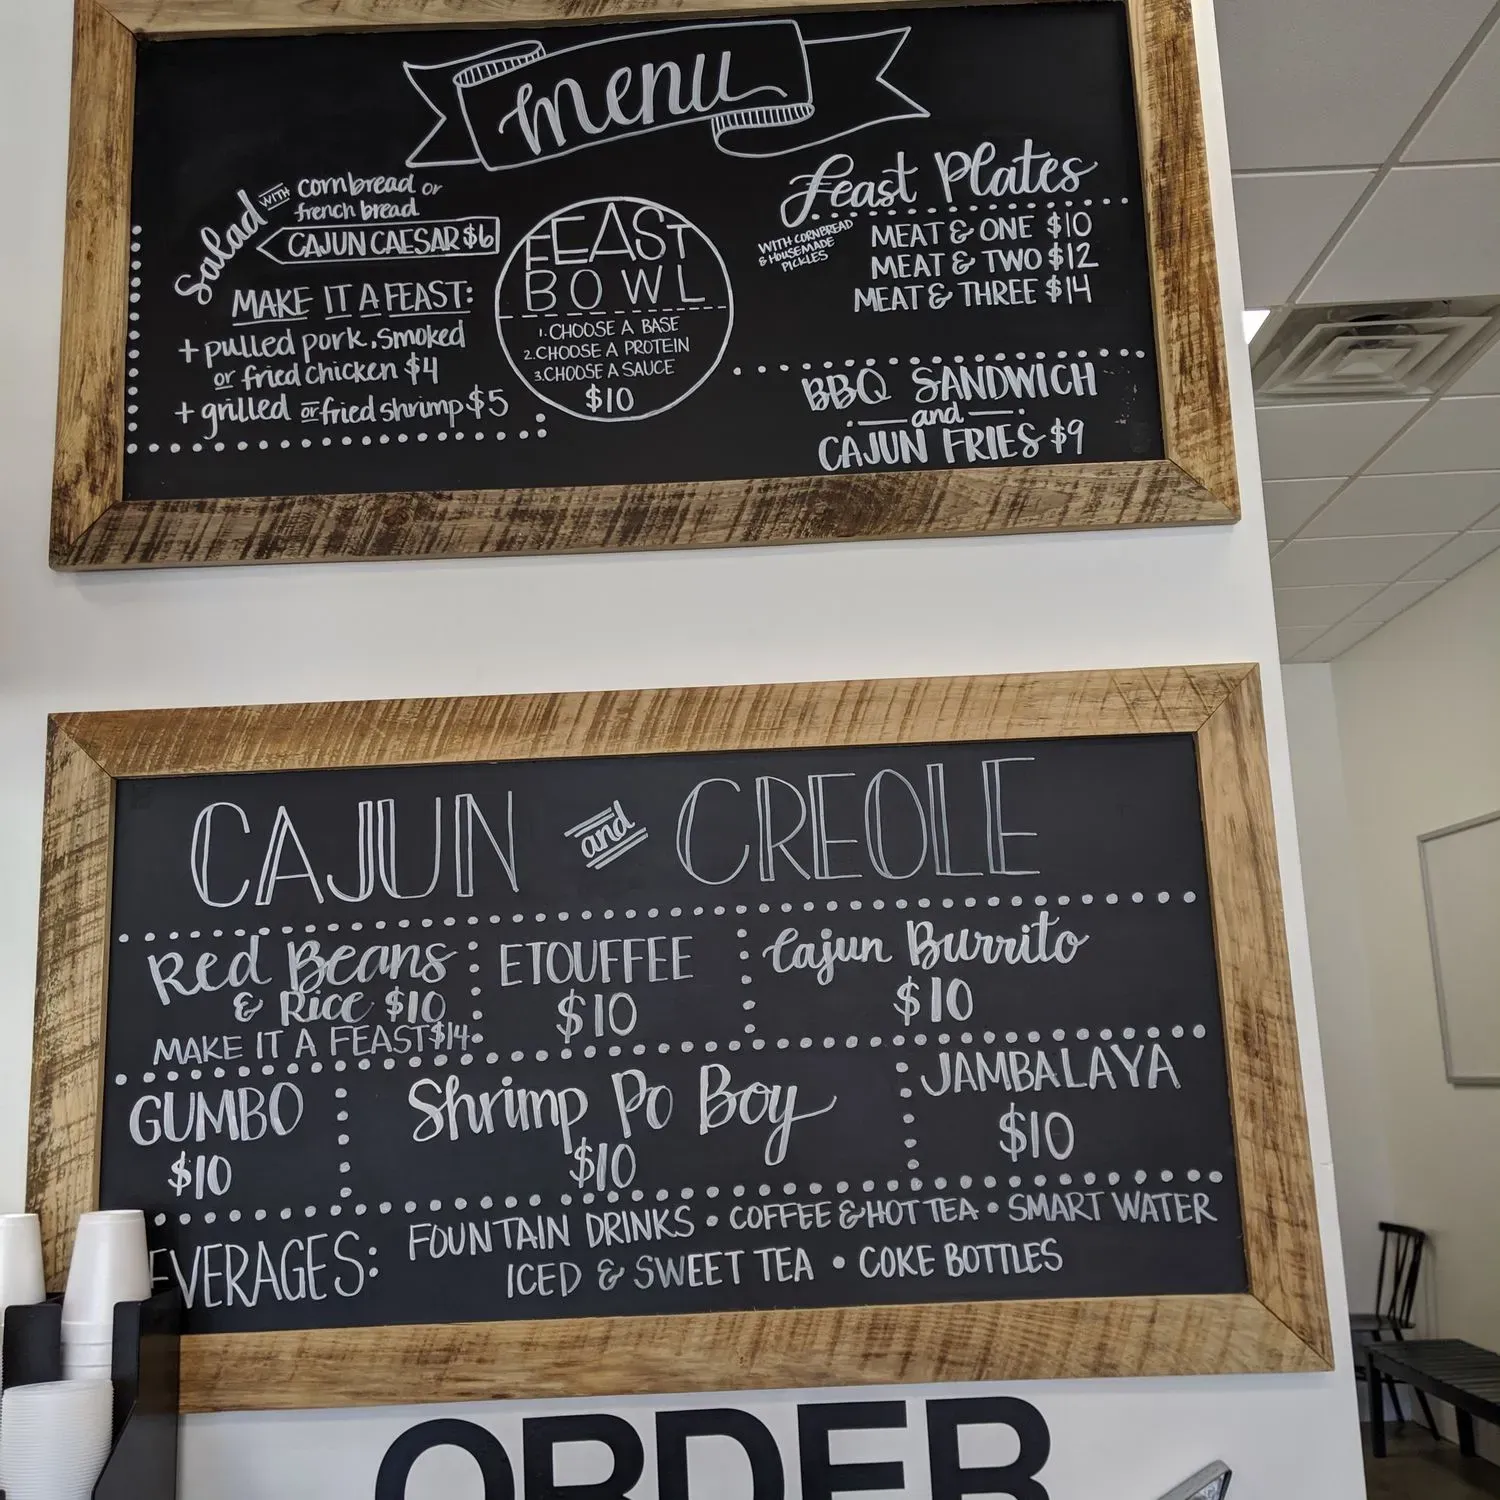 menu
Salad WITH cornbread or
french bread
CAJUN CAESAR $6
MAKE IT A FEAST:
+ pulled pork, smoked
or fried chicken $4
+ grilled or fried shrimp $5
FEAST
BOWL
1. CHOOSE A BASE
2. CHOOSE A PROTEIN
3. CHOOSE A SAUCE
$10
Feast Plates
WITH CORNBREAD
& HOUSEMADE
PICKLES
MEAT & ONE $10
MEAT & TWO $12
MEAT & THREE $14
BBQ SANDWICH
and
CAJUN FRIES $9
CAJUN and CREOLE
Red Beans
& Rice $10
MAKE IT A FEAST $14
ETOUFFEE
$10
Cajun Burrito
$10
GUMBO
$10
Shrimp Po Boy
$10
JAMBALAYA
$10
EVERAGES:
FOUNTAIN DRINKS • COFFEE & HOT TEA • SMART WATER
ICED & SWEET TEA • COKE BOTTLES
ORDER